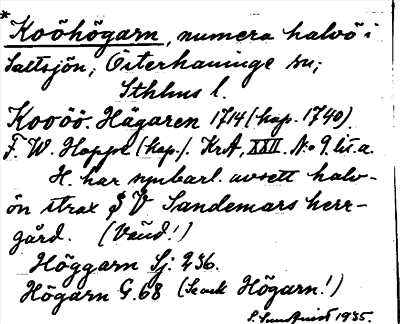 * Koöhögarn, numera halvö i
Saltsjön; Österhaninge sn;
Sthlms l.
Kooöö. Hägaren 1714 (kop. 1740)
F. W. Hoppe (kop.). KrA, XXII. No 9 lit. a.
H. har uppenbarl. avsett halv-
ön strax S V Sandemars herr-
gård. (Vänd!)
Höggarn Sj: 236.
Högarn G. 68 (Se ock Högarn!)
1935.